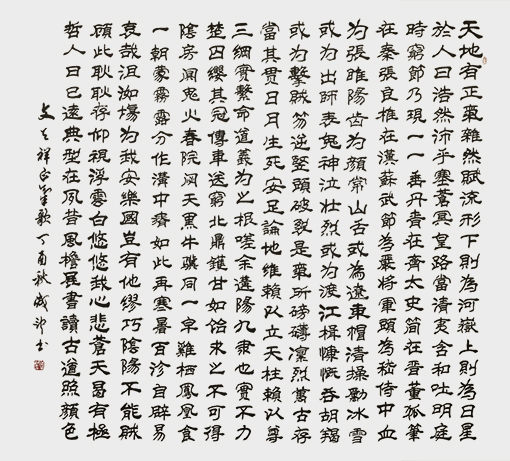 天地有正氣雜然賦流形下則為河嶽上則為日星
於人曰浩然沛乎塞蒼冥皇路當清夷含和吐明庭
時窮節乃現一一垂丹青在齊太史簡在晉董狐筆
在秦張良椎在漢蘇武節為嚴將軍頭為嵇侍中血
為張睢陽齒為顏常山舌或為遼東帽清操勵冰雪
或為出師表鬼神泣壯烈或為渡江楫慷慨吞胡羯
或為擊賊笏逆豎頭破裂是氣所磅礴凜烈萬古存
當其貫日月生死安足論地維賴以立天柱賴以尊
三綱實繫命道義為之根嗟余遘陽九隸也實不力
楚囚纓其冠傳車送窮北鼎鑊甘如飴求之不可得
陰房闃鬼火春院閟天黑牛驥同一皁雞棲鳳凰食
一朝蒙霧露分作溝中瘠如此再寒暑百沴自辟易
哀哉沮洳場為我安樂國豈有他繆巧陰陽不能賊
顧此耿耿存仰視浮雲白悠悠我心悲蒼天曷有極
哲人日已遠典型在夙昔風檐展書讀古道照顏色
文天祥正氣歌丁酉秋成書